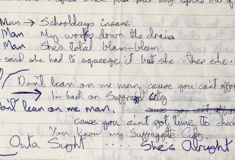 Man → Schooldays insane
Man My work's down the drain
Man She's total blam-blam
said she had to squeeze it but she .. then she .
Don't lean on me man, cause you can't afford
I'm back on Suffragette City
Don't lean on me man,
cause you ain't got time to check
You know my Suffragette City.
Outa Sight ..... She's Alright